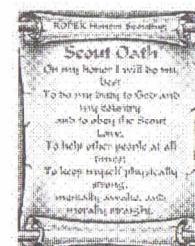 Scout Oath
On my honor I will do my
best
To do my duty to God and
my country
and to obey the Scout
Law;
To help other people at all
times;
To keep myself physically
strong,
mentally awake, and
morally straight.